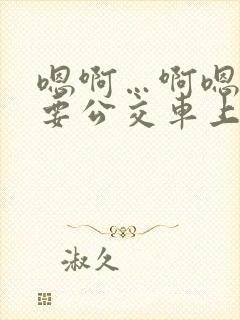 嗯啊…啊嗯
要公交车上
淑久